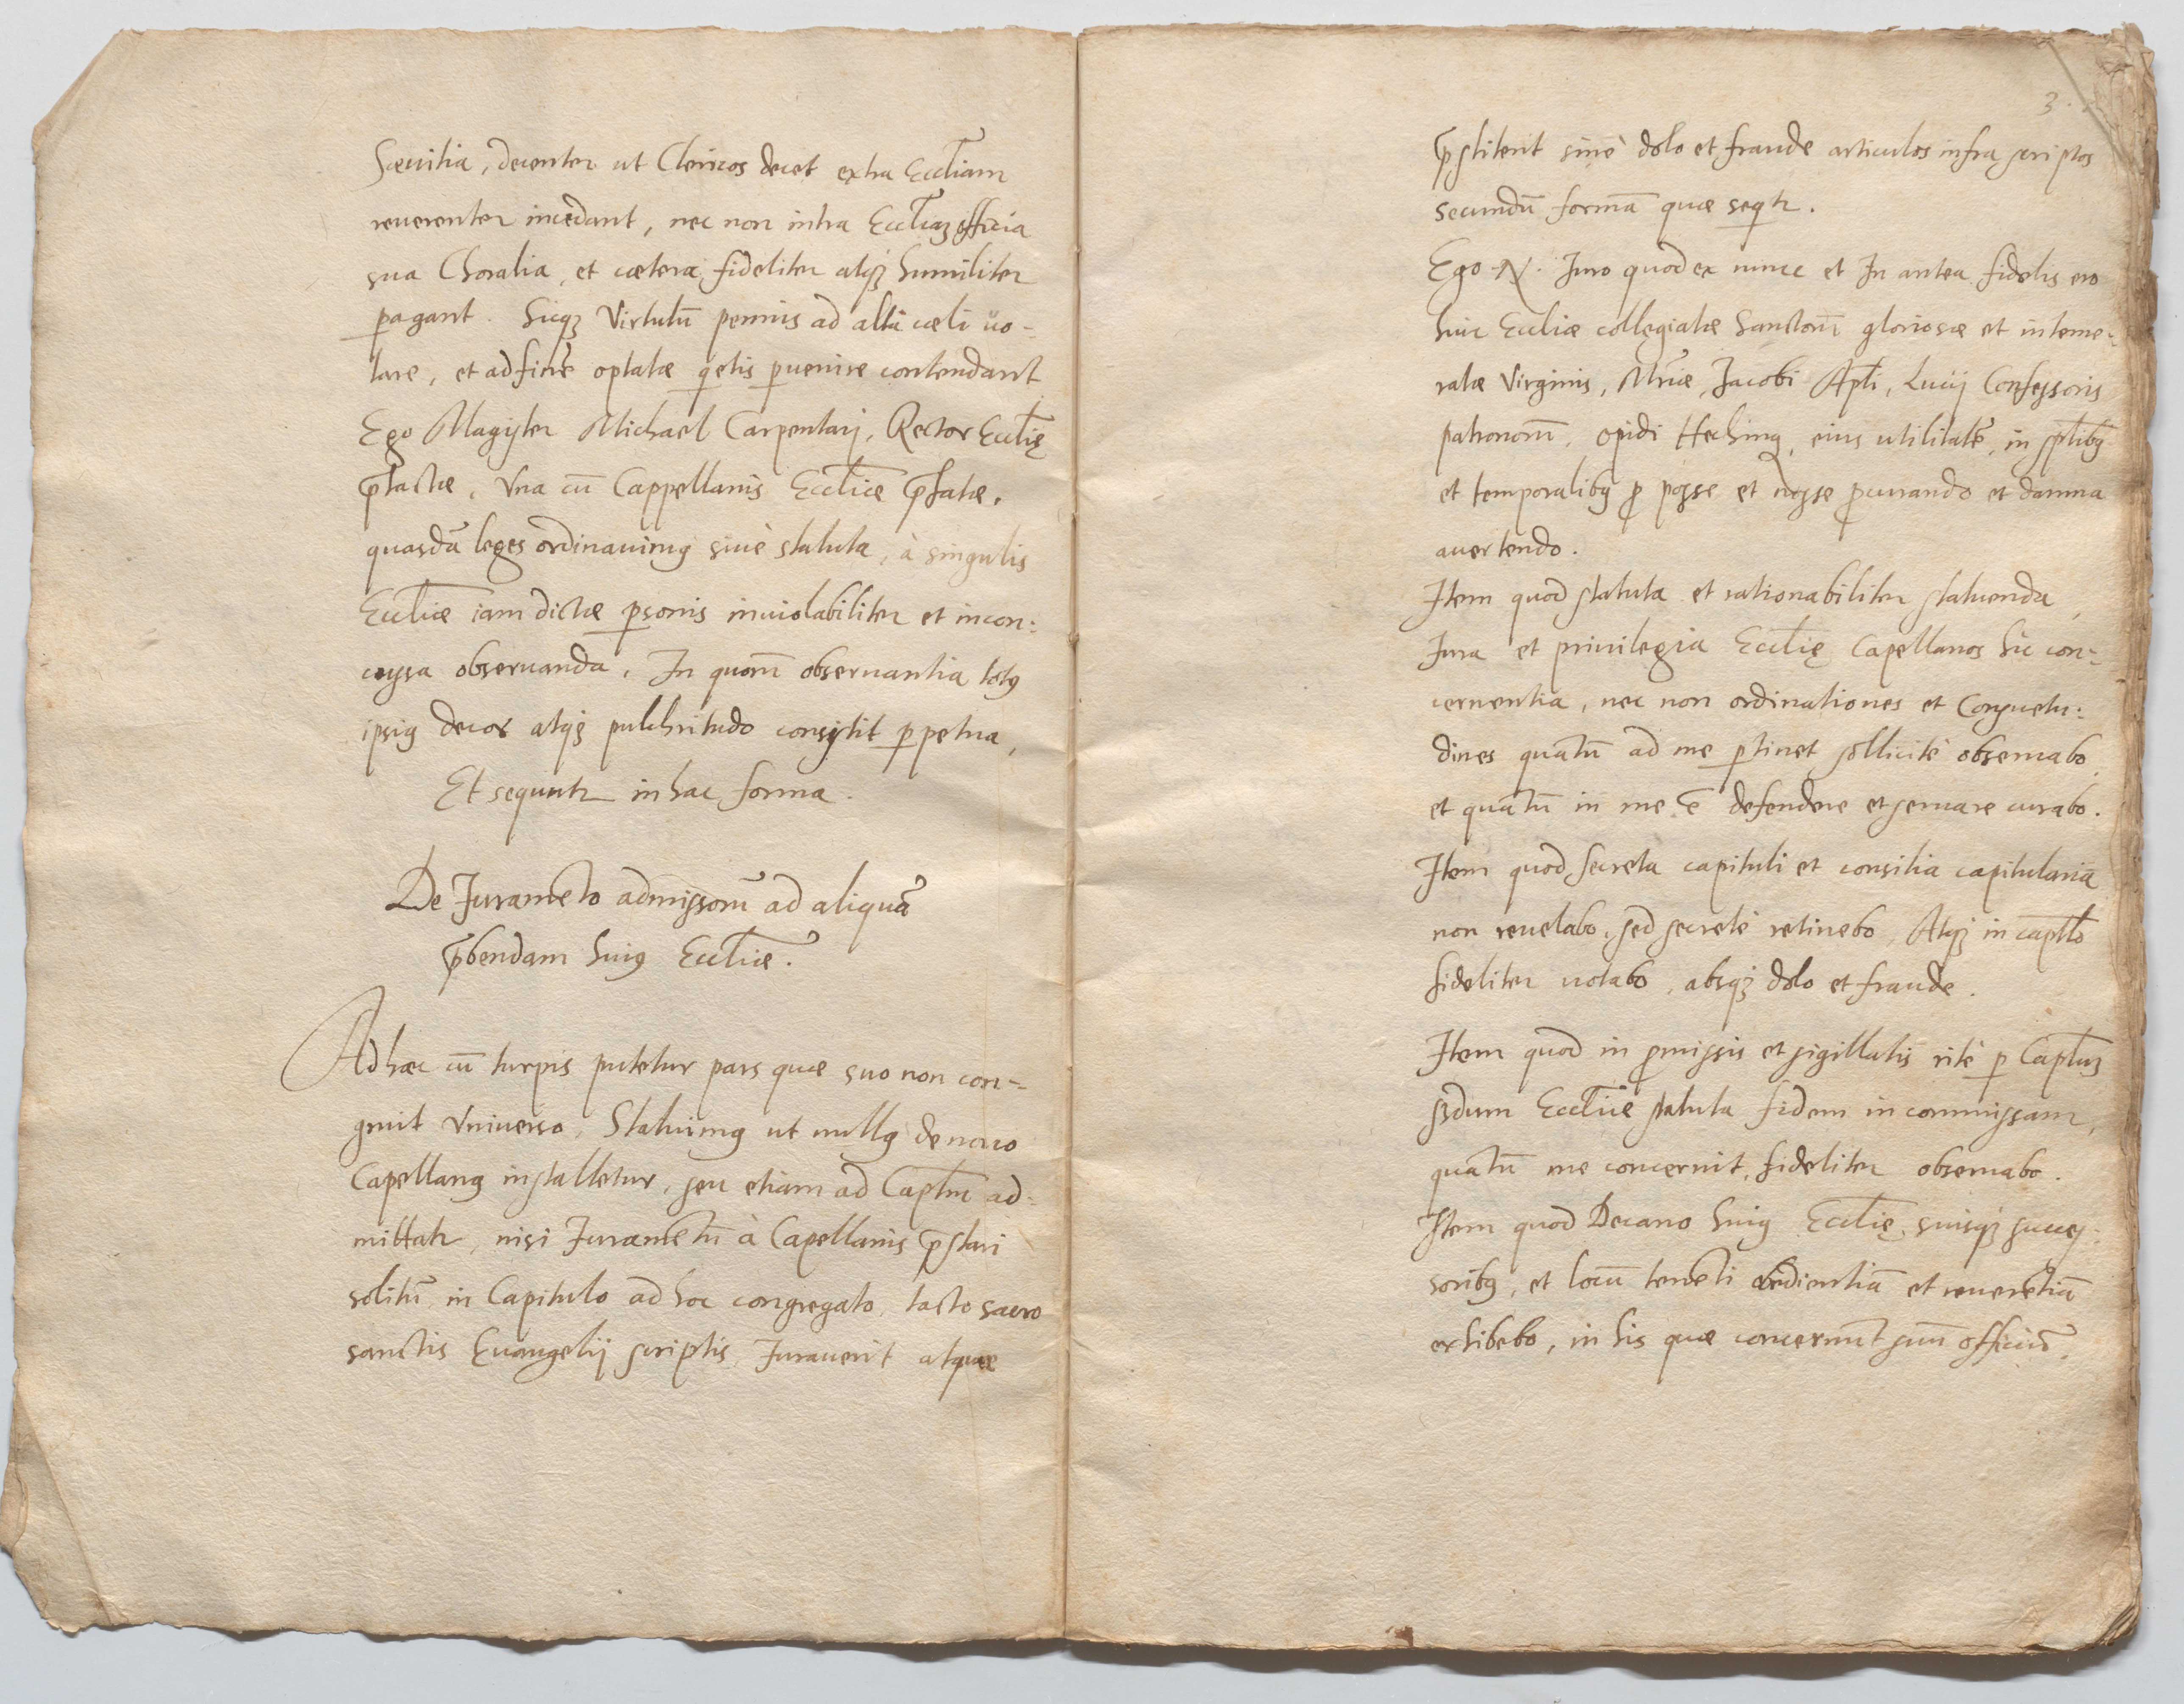 Saeuitia, decenter ut Clericos decet extra Eccl̃iam
reuerenter incedant, nec non intra Eccl̃iaꝫ officia
sua Choralia, et caetera fideliter atqꝫ humiliter
ꝑagant. Sicqꝫ Virtutũ pennis ad alta caeli uo-
lare, et ad finẽ optatae q̃etis ꝑuenire contendant
Ego Magister Michael Carpentarij, Rector Eccl̃ię
p̃tactae, Vna cũ Cappellanis Eccl̃iae p̃fatae,
quasdã leges ordinauimꝰ siuè statuta, à singulis
Eccl̃iae iam dictae ꝑsonis inuiolabiliter et incon:
cussa obseruanda, In quor̃ obseruantia totꝰ
ipsiꝰ decor atqꝫ pulchritudo consistit ꝑpetua,
Et sequunt̃ in hac forma.
De Juramẽto admissor̃ ad aliquã
p̃bendam huiꝰ Eccl̃iae.
Ad haec cũ turpis putetur pars quae suo non con-
gruit Vniuerso, Statuimꝰ ut nullꝰ de nouo
Capellanꝰ installetur, seu etiam ad Capl̃m ad-
mittat̃, nisi Juramẽtũ à Capellanis p̃stari
solitũ in Capitulo ad hoc congregato, tacto sacro
sanctis Euangelij scriptis Jurauerit atque
3.
p̃stiterit sinè dolo et fraude articulos infra scriptos
secundũ formã quae seqt̃.
Ego N. Juro quod ex nunc et In antea fidelis ero
huic Eccl̃iae collegiatae Sanctor̃ gloriosae et inteme-
ratae Virginis, Mr̃iae, Jacobi Apl̃i, Lucij Confessoris
patronor̃, opidi Heching, eius utilitatẽ, in sp̃l̃ibꝰ
et temporalibꝰ ꝓ posse et nosse ꝓcurando et damna
auertendo.
Item quod statuta et rationabiliter statuenda,
Jura et priuilegia Eccl̃ię Capellanos hic con-
cernentia, nec non ordinationes et Consuetu:
dines quãtũ ad me ꝑtinet sollicitè obseruabo,
et quãtũ in me ẽ defendere et seruare curabo.
Item quod secreta capituli et consilia capitularia
non reuelabo, sed secretè retinebo, Atqꝫ in capl̃lo
fideliter uotabo, absqꝫ dolo et fraude.
Item quod in ꝓmissis et sigillatis ritè ꝑ Capl̃uꝫ
sꝫdum Eccl̃iae statuta fidem incommissam,
quãtũ me concernit, fideliter obseruabo.
Item quod Decano huiꝰ Eccl̃ię, suisqꝫ succes-
soribꝰ, et locũ tenẽti obedientiã et reuerẽtiã
exhibebo, in his quae concernũt suũ officiũ.